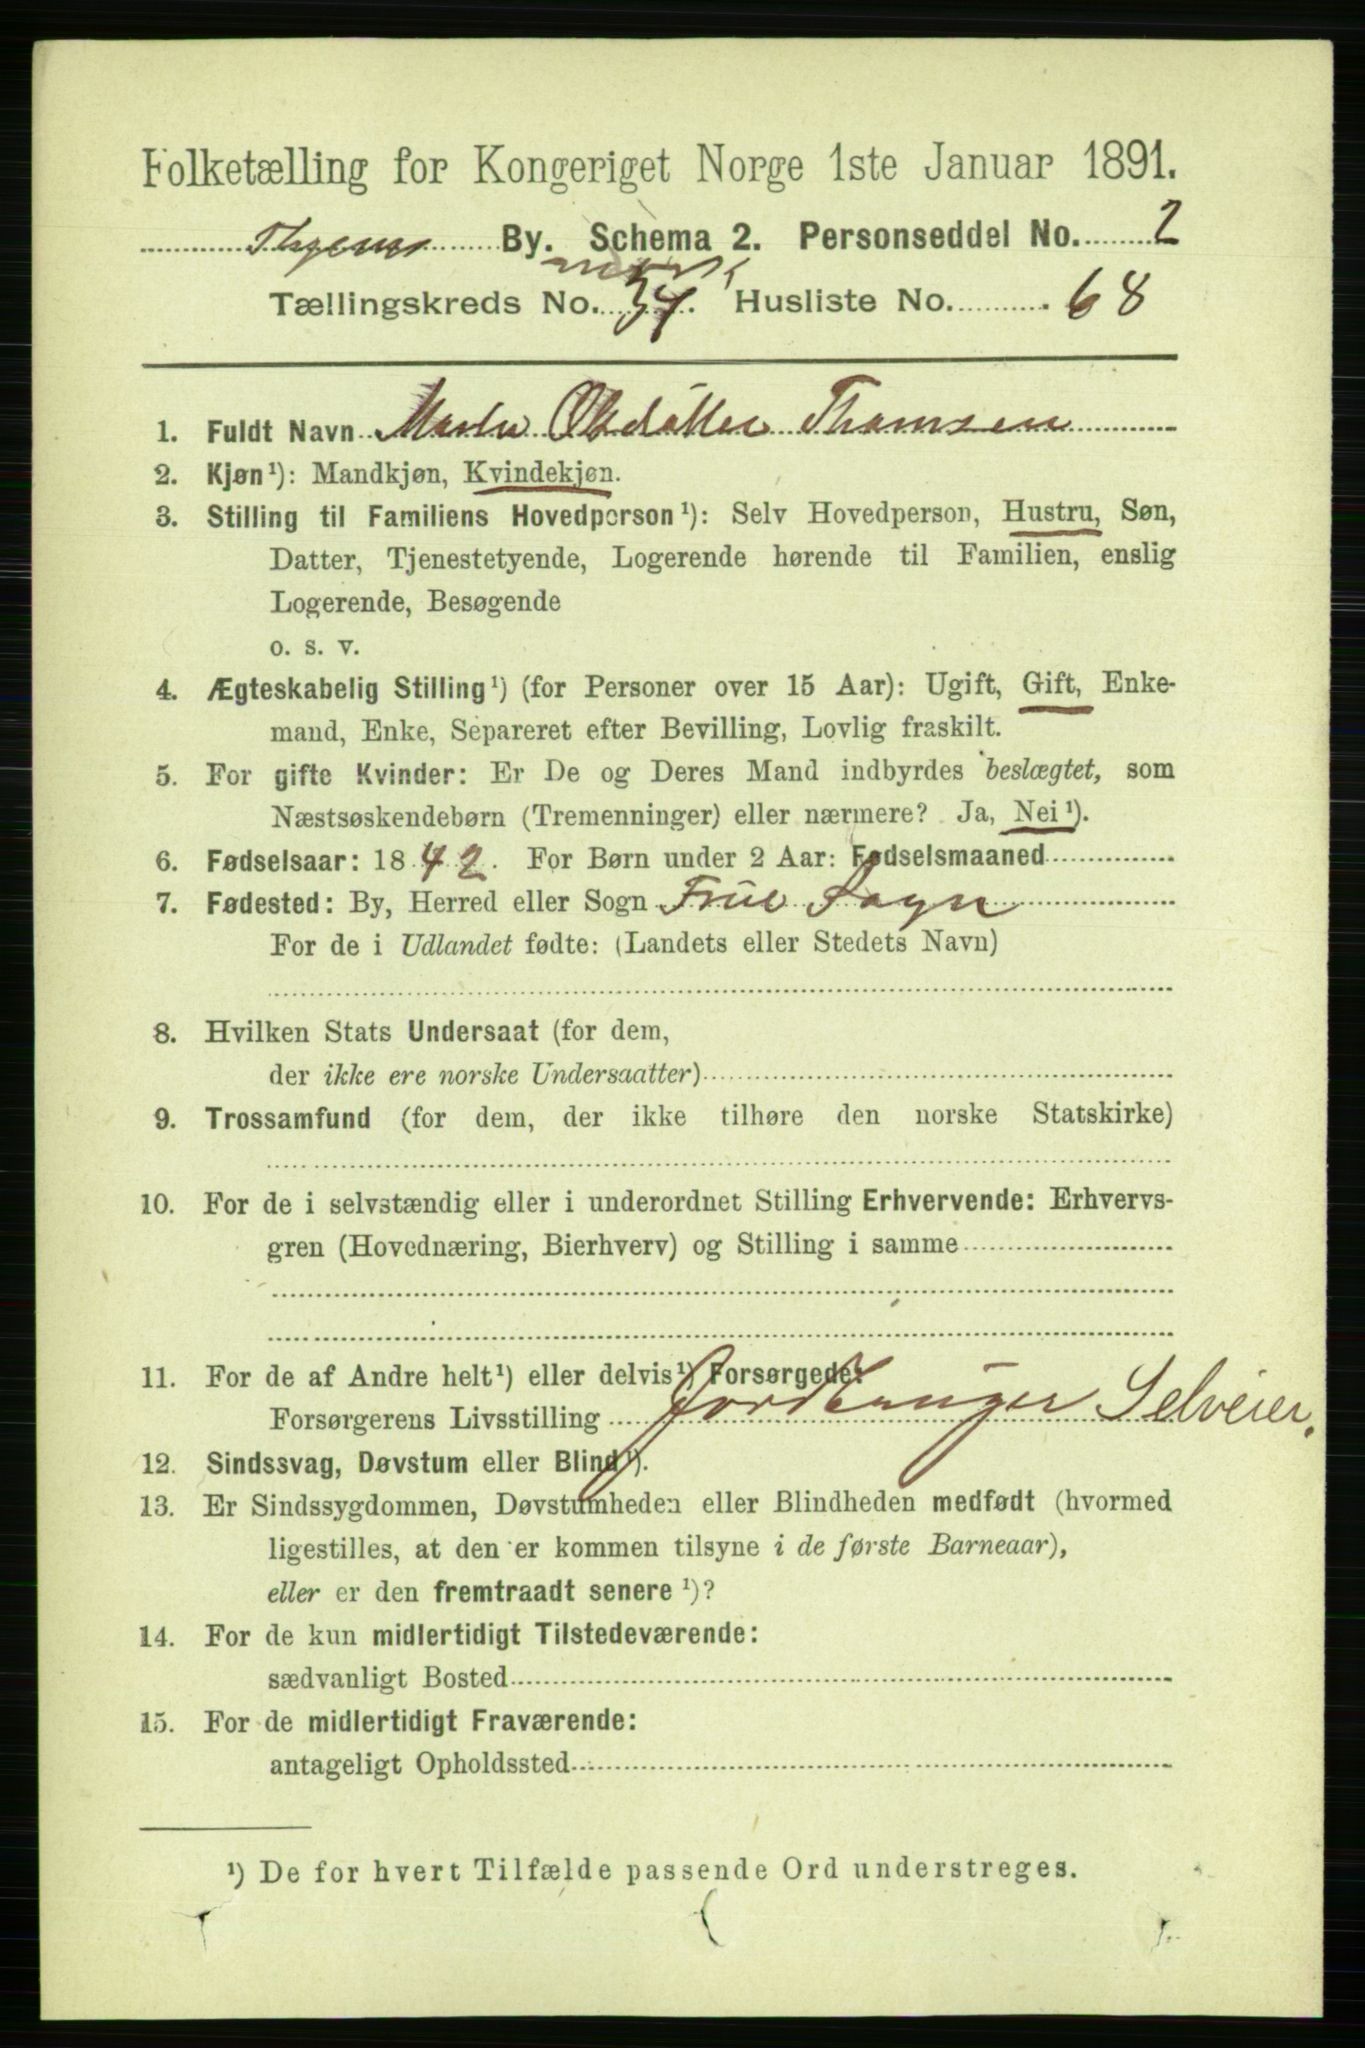 Folketælling for Kongeriget Norge 1ste Januar 1891.
By. Schema 2. Personseddel No. 2
Tællingskreds No. 34. Husliste No. 68
1. Fuldt Navn Thomsen
2. Kjøn¹): Mandkjøn, Kvindekjøn.
3. Stilling til Familiens Hovedperson¹): Selv Hovedperson, Hustru, Søn,
Datter, Tjenestetyende, Logerende hørende til Familien, enslig
Logerende, Besøgende
o. s. v.
4. Ægteskabelig Stilling¹) (for Personer over 15 Aar): Ugift, Gift, Enke-
mand, Enke, Separeret efter Bevilling, Lovlig fraskilt.
5. For gifte Kvinder: Er De og Deres Mand indbyrdes beslægtet, som
Næstsøskendebørn (Tremenninger) eller nærmere? Ja, Nei¹).
6. Fødselsaar: 1842. For Børn under 2 Aar: Fødselsmaaned
7. Fødested: By, Herred eller Sogn Frue Sogn
For de i Udlandet fødte: (Landets eller Stedets Navn)
8. Hvilken Stats Undersaat (for dem,
der ikke ere norske Undersaatter)
9. Trossamfund (for dem, der ikke tilhøre den norske Statskirke)
10. For de i selvstændig eller i underordnet Stilling Erhvervende: Erhvervs-
gren (Hovednæring, Bierhverv) og Stilling i samme
11. For de af Andre helt¹) eller delvis¹) Forsørgede:
Forsørgerens Livsstilling Jordbruger Selveier.
12. Sindssvag, Døvstum eller Blind¹).
13. Er Sindssygdommen, Døvstumheden eller Blindheden medfødt (hvormed
ligestilles, at den er kommen tilsyne i de første Barneaar),
eller er den fremtraadt senere ¹)?
14. For de kun midlertidigt Tilstedeværende:
sædvanligt Bosted
15. For de midlertidigt Fraværende:
antageligt Opholdssted
¹) De for hvert Tilfælde passende Ord understreges.